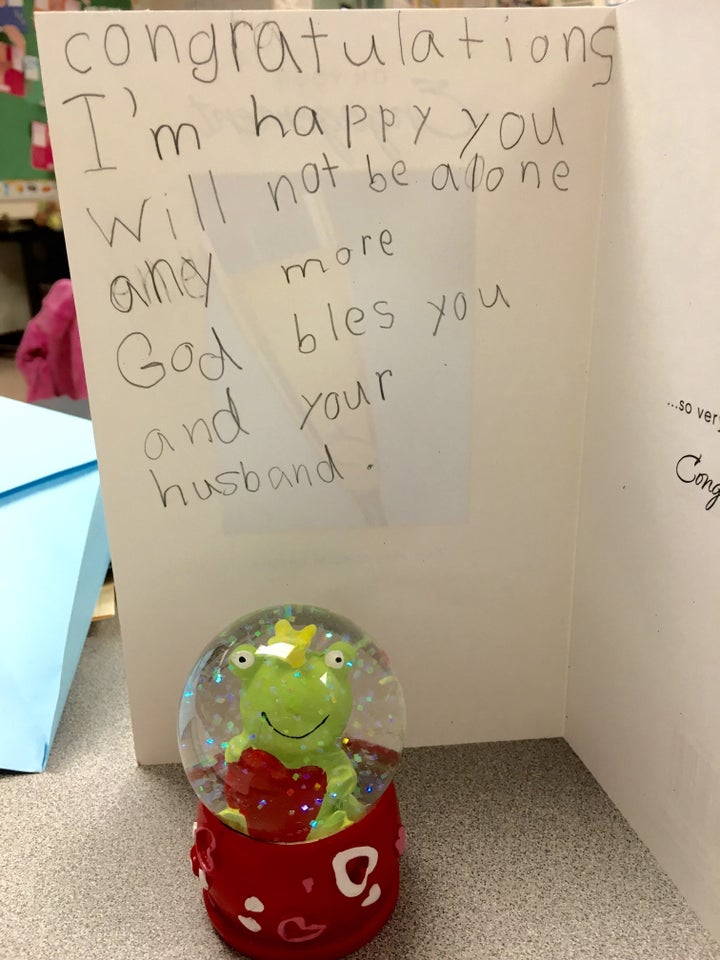 congratulations
I'm happy you
will not be alone
any more
God bles you
and your
husband.
...so very
Cong